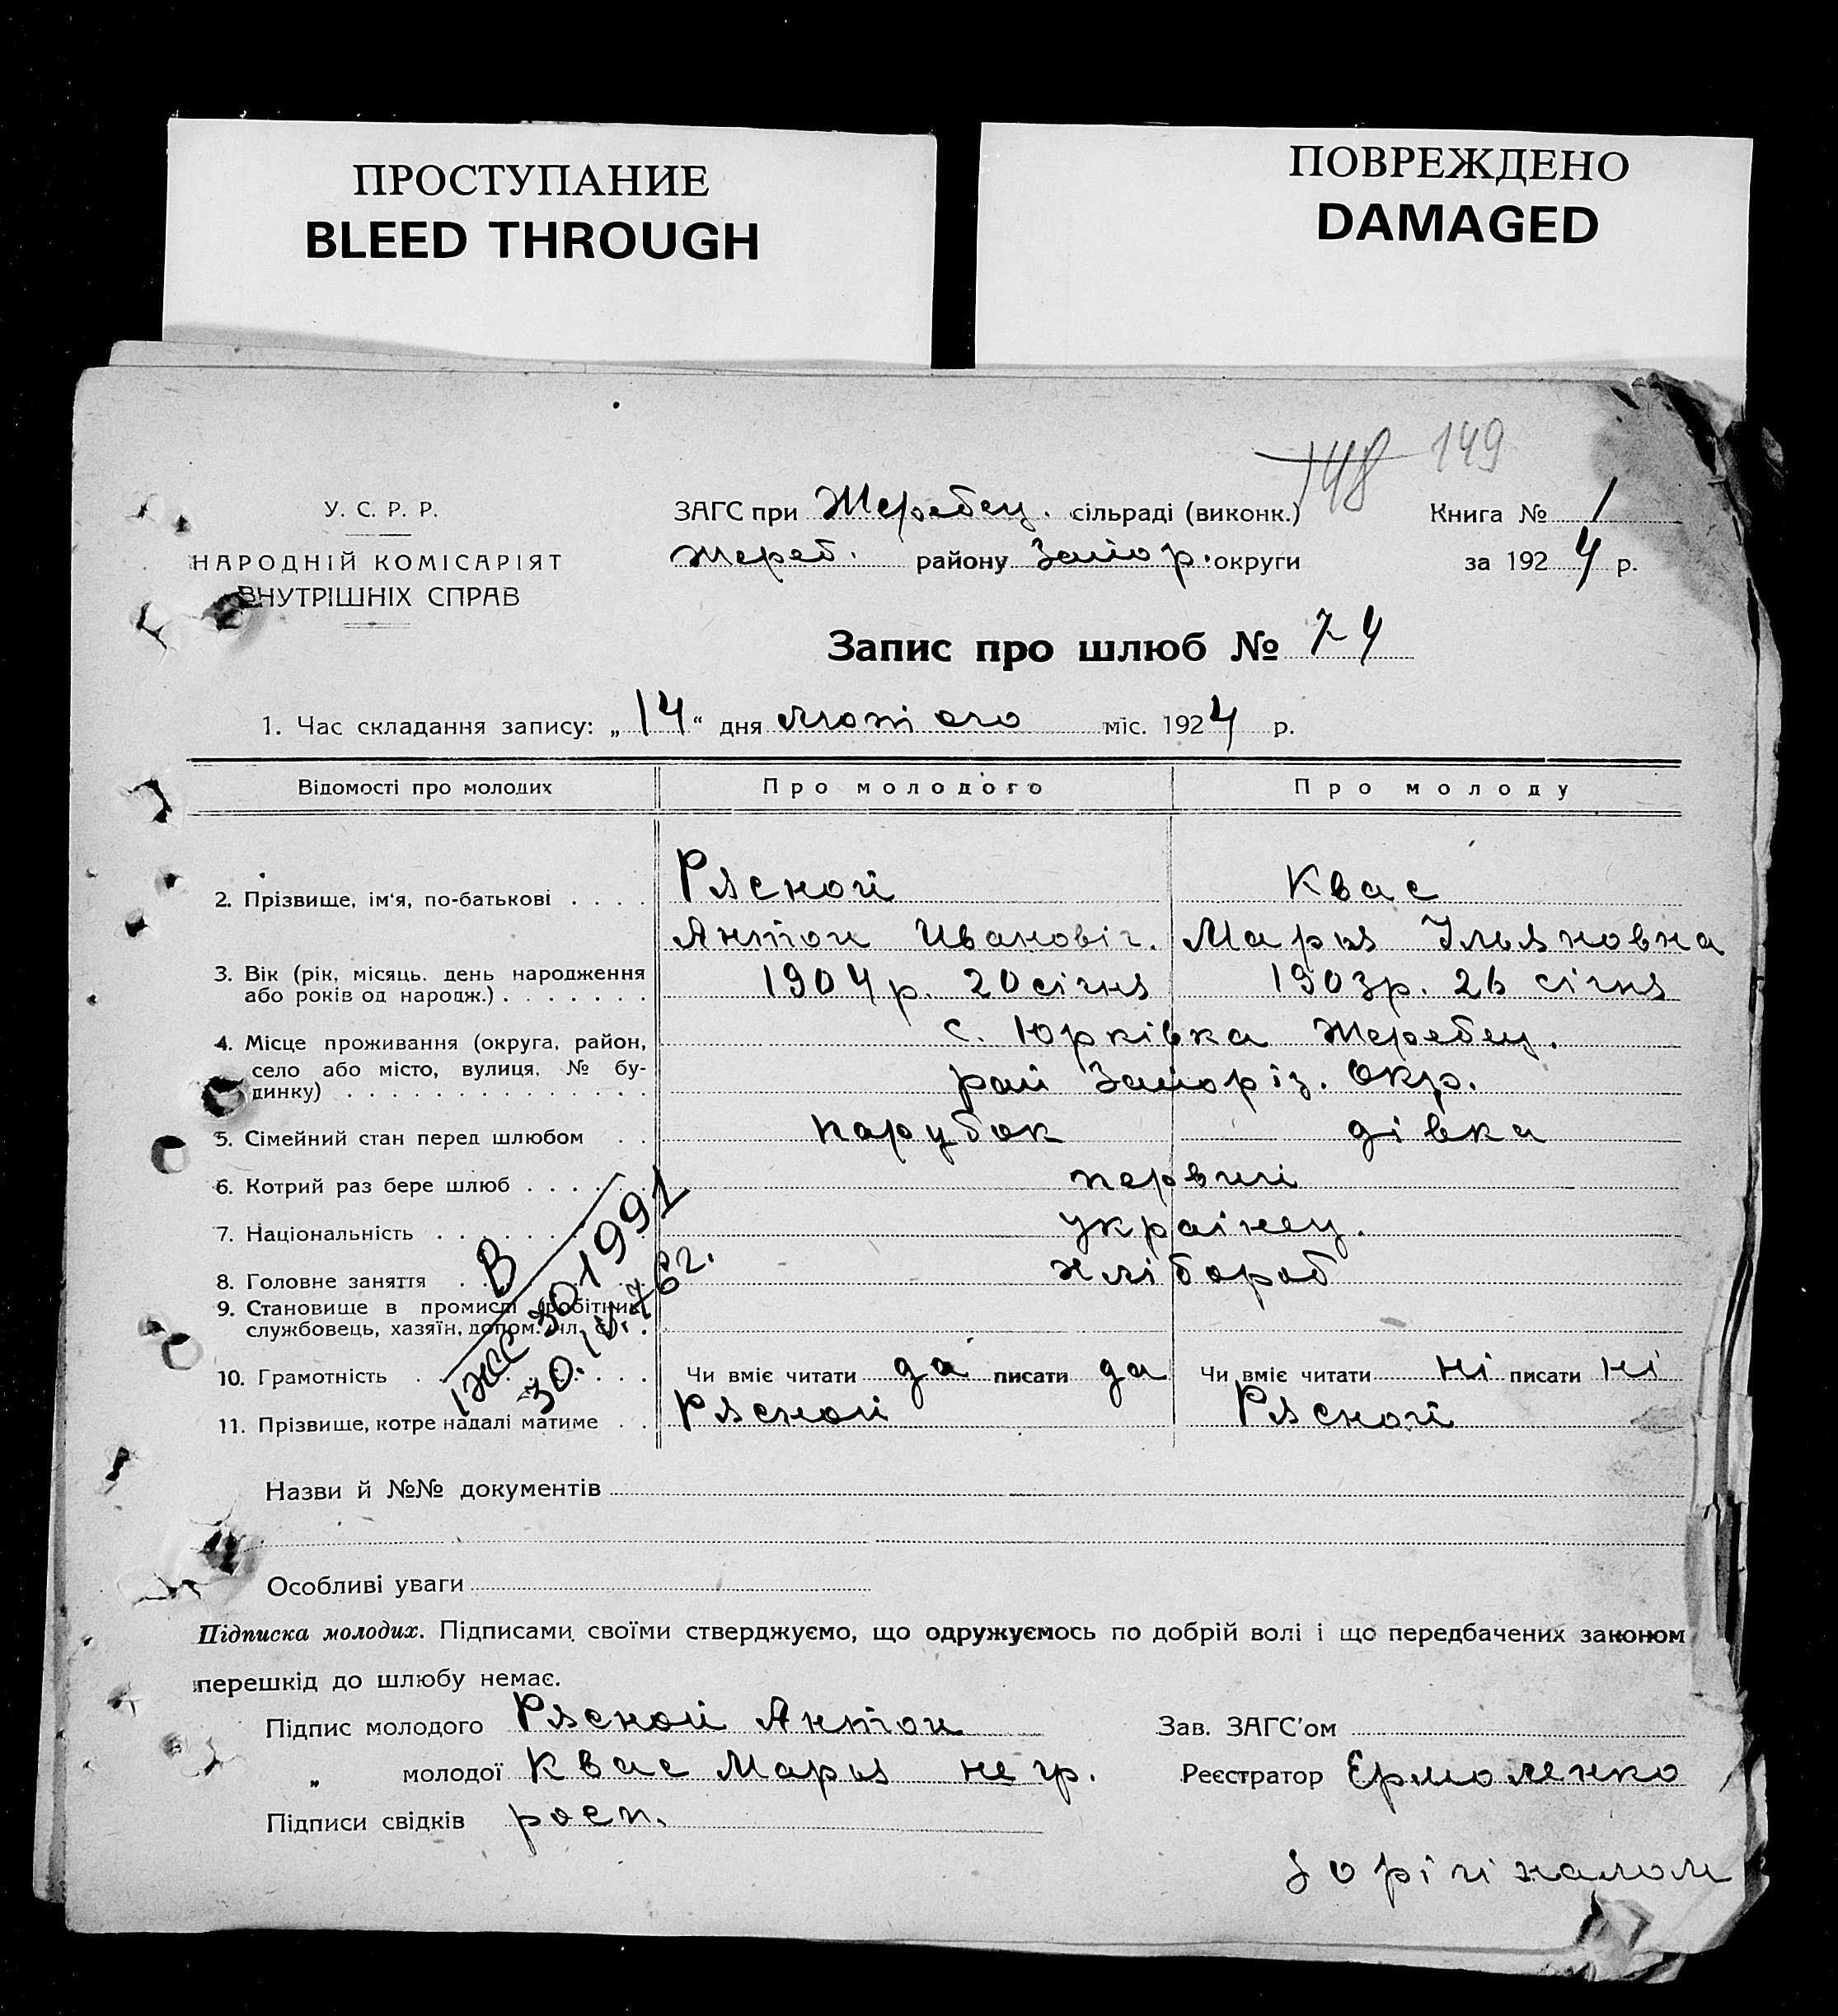 ПРОСТУПАНИЕ
BLEED THROUGH
ПОВРЕЖДЕНО
DAMAGED
148 149
У. С. Р. Р.
НАРОДНІЙ КОМІСАРІЯТ
ВНУТРІШНІХ СПРАВ
ЗАГС при Жеребец. сільраді (виконк.)
Жереб. району Запор. округи
Книга № 1
за 1924 р.
Запис про шлюб № 74
1. Час складання запису: „14“ дня лютого міс. 1924 р.
Відомості про молодих Про молодого Про молоду
Рясной Квас
2. Прізвище, ім'я, по-батькові . . . .
Антон Ивановіч. Марья Ільяновна
3. Вік (рік, місяць. день народження
або років од народж.) . . . . . . .
1904р. 20 січня 1903р. 26 січня
4. Місце проживання (округа, район,
село або місто, вулиця, № бу-
динку) . . . . . . . . . . . . . .
с. Юрківка Жеребец.
рай Запоріз. Окр.
5. Сімейний стан перед шлюбом . . парубок дівка
6. Котрий раз бере шлюб . . . . . . первиі
7. Національність . . . . . . українец.
8. Головне заняття . . хлібороб
9. Становище в промислі (робітник,
службовець, хазяїн, допом. чл. с.) .
10. Грамотність . . . . . . Чи вміє читати да писати да Чи вміє читати ні писати ні
11. Прізвище, котре надалі матиме . . Рясной Рясной
В
ІЖС 301991
30.
62.
Назви й №№ документів
Особливі уваги
Підписка молодих. Підписами своїми стверджуємо, що одружуємось по добрій волі і що передбачених законом
перешкід до шлюбу немає.
Підпис молодого Рясной Антон Зав. ЗАГС'ом
„ молодої Квас Марья не гр. Реєстратор Єрмоленко
Підписи свідків росп.
З орігіналом